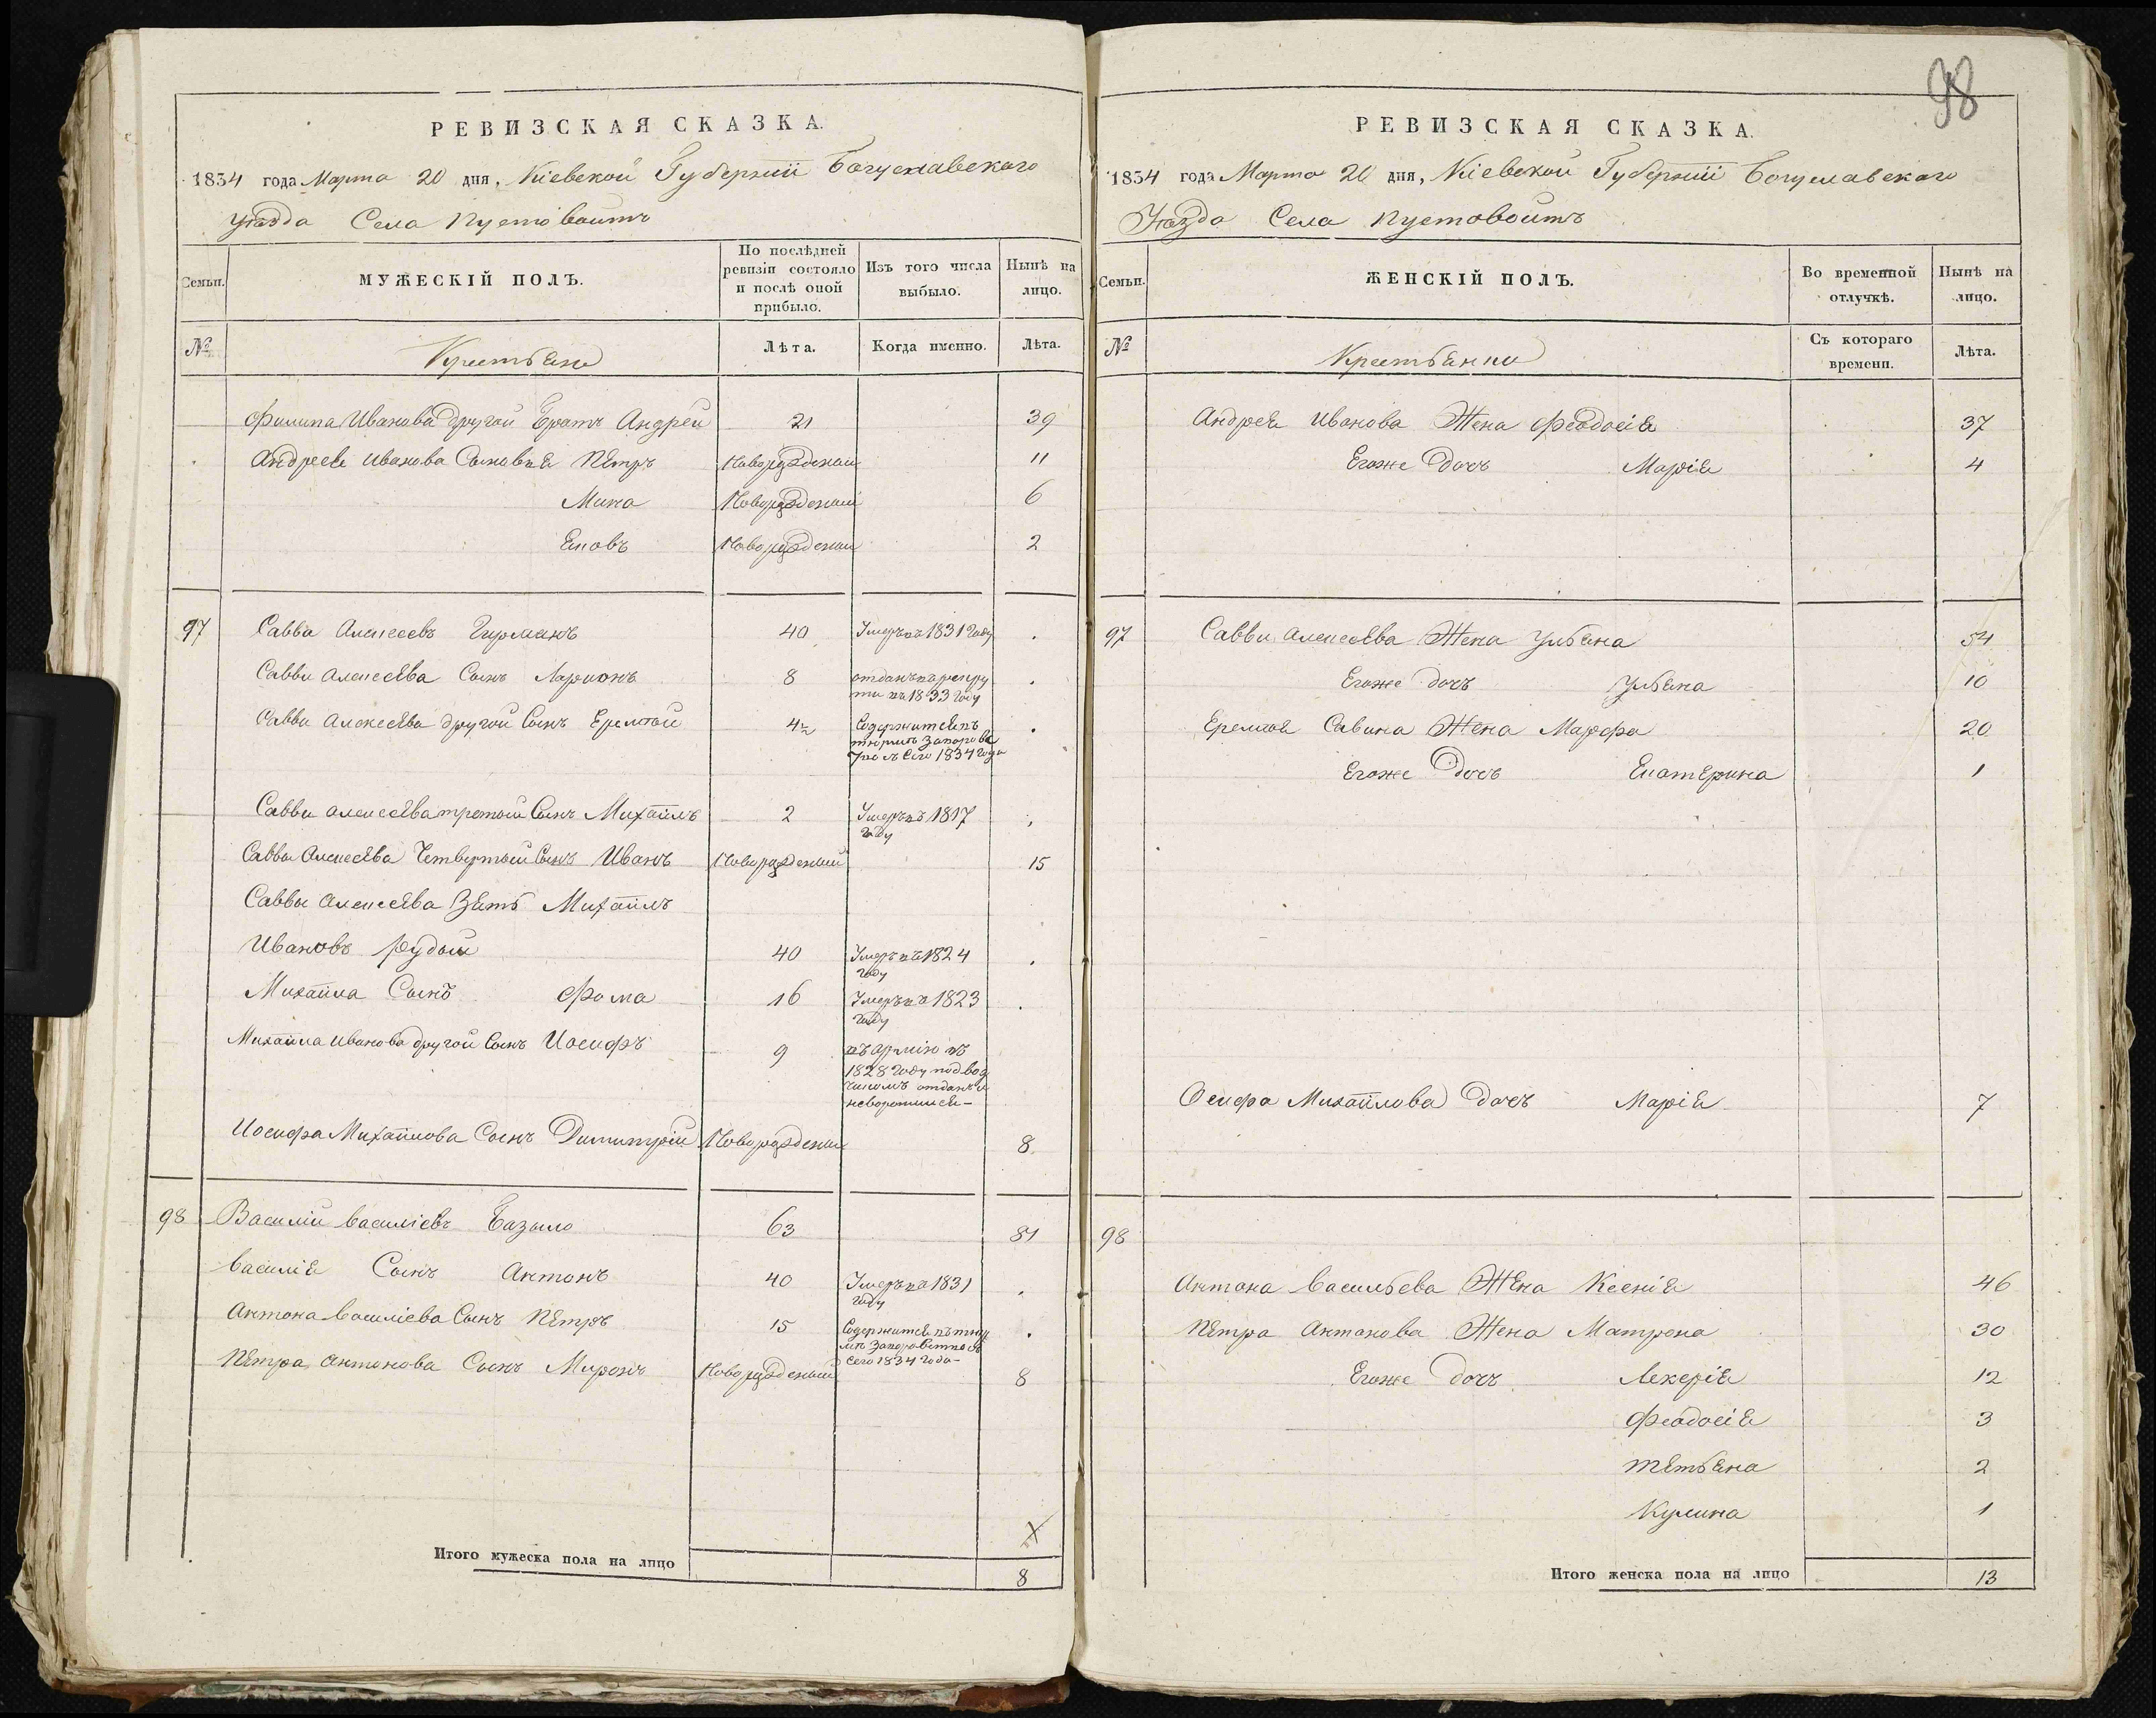 РЕВИЗСКАЯ СКАЗКА.
1834 года Марта 20 дня, Кіевской Губерніи Богуславского
уѣзда Села Пустовойтъ
Семьи.
МУЖЕСКІЙ ПОЛЪ.
По послѣдней ревизіи состояло и послѣ оной прибыло.
Изъ того числа выбыло.
Нынѣ на лицо.
№
Крестьяне
Лѣта.
Когда именно.
Лѣта.
Филипа Иванова другой Братъ Андрей 21 39
Андрея Иванова Сыновья Петръ Новорожденый 11
Мина Новорожденый 6
Яковъ Новорожденый 2
97 Савва Алексеевъ 40 Умеръ въ 1831 году .
Саввы Алексеева Сынъ Ларионъ 8 отданъ въ рекру
ты въ 1833 году .
Саввы Алексеева другой Сынъ Еремѣй 4½ Содержится въ
тюрьмѣ за воров
ство съ Сего 1834 года .
Саввы Алексеева третий Сынъ Михайлъ 2 Умеръ въ 1817
году .
Саввы Алексеева Четвертый Сынъ Иванъ Новорожденый 15
Саввы Алексеева Зять Михайлъ
Ивановъ Рудый 40 Умеръ въ 1824
году .
Михайла Сынъ Фома 16 Умеръ въ 1823
году .
Михайла Иванова другой Сынъ Иосифъ 9 въ армію въ
1828 году
отданъ и
неворотился-
Иосифа Михайлова Сынъ Димитрій Новорожденый 8
98 Василий Василіевъ Базыло 63 81
Василія Сынъ Антонъ 40 Умеръ въ 1831
году .
Антона Василіева Сынъ Петръ 15 Содержится въ тюр
мѣ за воровство съ
Сего 1834 года- .
Петра Антонова Сынъ Миронъ Новорожденый 8
Итого мужеска пола на лицо 8
98
РЕВИЗСКАЯ СКАЗКА.
1834 года Марта 20 дня, Кіевской Губерніи Богуславского
Уѣзда Села Пустовойтъ
Семьи.
ЖЕНСКІЙ ПОЛЪ.
Во временной отлучкѣ.
Нынѣ на лицо.
№
Крестьянки
Съ котораго времени.
Лѣта.
Андрея Иванова Жена Феодосія 37
Егоже Дочь Марія 4
97 Саввы Алексеева Жена Ульяна 54
Егоже дочь Ульяна 10
Еремѣя Савина Жена Марфа 20
Егоже Дочь Екатерина 1
Осифа Михайлова Дочь Марія 7
98
Антона Васильева Жена Ксенія 46
Петра Антонова Жена Матрона 30
Егоже дочь Лекерія 12
Феодосія 3
Тетьяна 2
Кулина 1
Итого женска пола на лицо 13